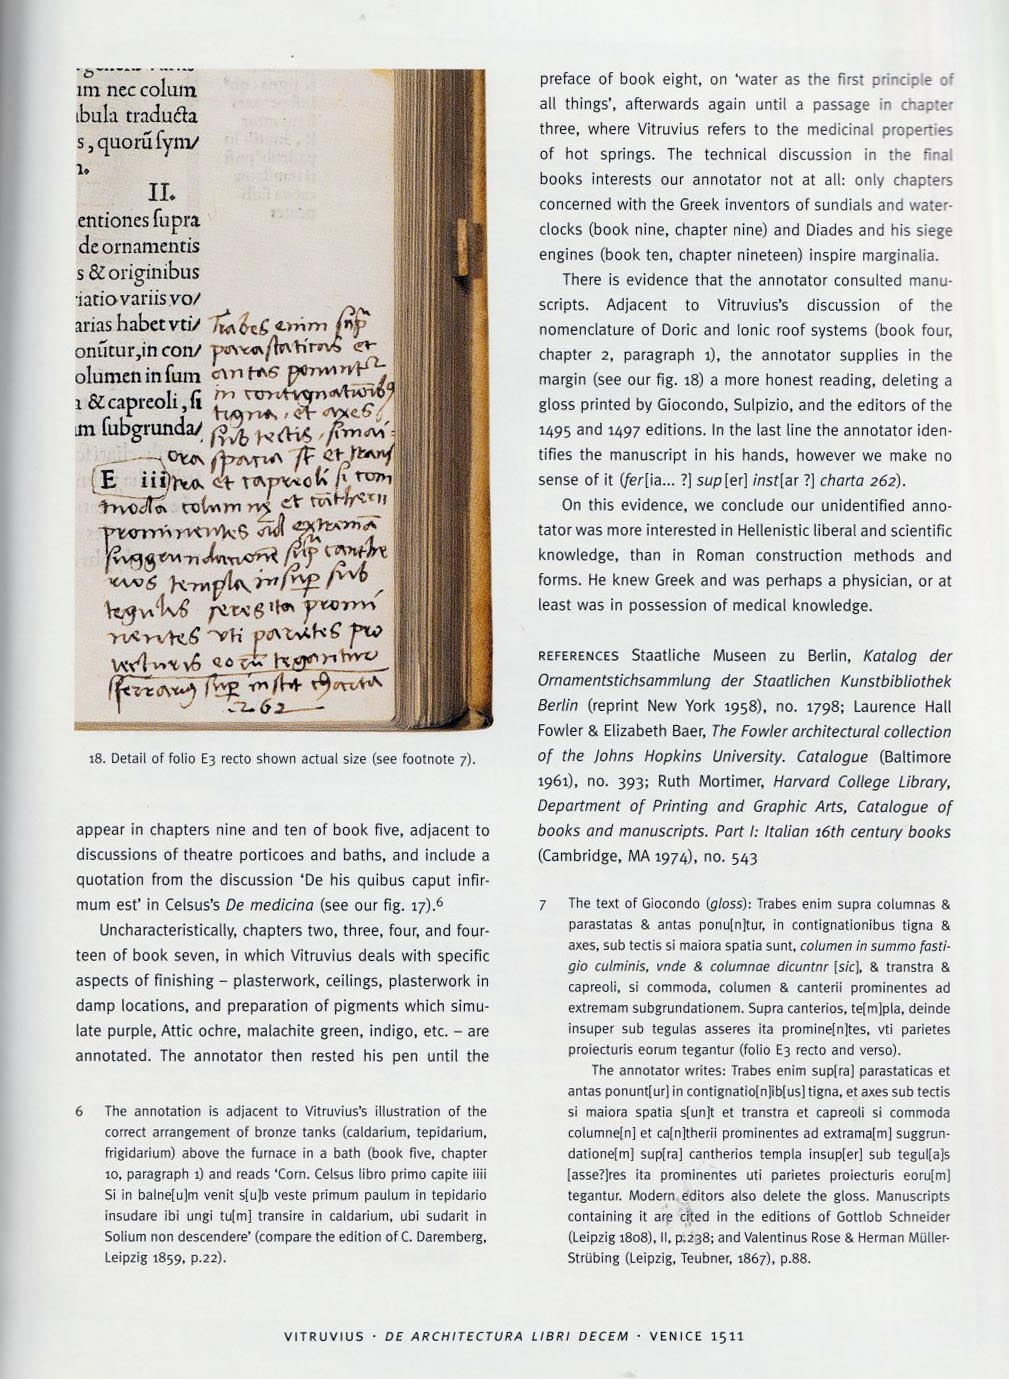 im nec colum
bula traducta
s, quorũ sym/
II.
entiones supra
de ornamentis
s & originibus
iatio variis vo/
arias habet vti/
onũtur, in con/
olumen in sum
& capreoli, si
m subgrunda/
E iii
Trabes enim sup
parastaticas et
antas ponunt
in contignationib9
tigna, et axes
sub tectis, si mai-
ora spacia st et trans
tra et capreoli si com
moda columnẽ et cãtherii
prominentes ad extramã
suggrundationẽ sup canthe
rios templa insup sub
tegulis seres ita promi
nentes vti parietes pro
iecturis eorũ tegantur
sup inst charta
262
18. Detail of folio E3 recto shown actual size (see footnote 7).
appear in chapters nine and ten of book five, adjacent to
discussions of theatre porticoes and baths, and include a
quotation from the discussion ‘De his quibus caput infir-
mum est’ in Celsus’s De medicina (see our fig. 17).6
Uncharacteristically, chapters two, three, four, and four-
teen of book seven, in which Vitruvius deals with specific
aspects of finishing – plasterwork, ceilings, plasterwork in
damp locations, and preparation of pigments which simu-
late purple, Attic ochre, malachite green, indigo, etc. – are
annotated. The annotator then rested his pen until the
6 The annotation is adjacent to Vitruvius’s illustration of the
correct arrangement of bronze tanks (caldarium, tepidarium,
frigidarium) above the furnace in a bath (book five, chapter
10, paragraph 1) and reads ‘Corn. Celsus libro primo capite iiii
Si in balne[u]m venit s[u]b veste primum paulum in tepidario
insudare ibi ungi tu[m] transire in caldarium, ubi sudarit in
Solium non descendere’ (compare the edition of C. Daremberg,
Leipzig 1859, p.22).
preface of book eight, on ‘water as the first principle of
all things’, afterwards again until a passage in chapter
three, where Vitruvius refers to the medicinal properties
of hot springs. The technical discussion in the final
books interests our annotator not at all: only chapters
concerned with the Greek inventors of sundials and water-
clocks (book nine, chapter nine) and Diades and his siege
engines (book ten, chapter nineteen) inspire marginalia.
There is evidence that the annotator consulted manu-
scripts. Adjacent to Vitruvius’s discussion of the
nomenclature of Doric and Ionic roof systems (book four,
chapter 2, paragraph 1), the annotator supplies in the
margin (see our fig. 18) a more honest reading, deleting a
gloss printed by Giocondo, Sulpizio, and the editors of the
1495 and 1497 editions. In the last line the annotator iden-
tifies the manuscript in his hands, however we make no
sense of it (fer[ia... ?] sup[er] inst[ar ?] charta 262).
On this evidence, we conclude our unidentified anno-
tator was more interested in Hellenistic liberal and scientific
knowledge, than in Roman construction methods and
forms. He knew Greek and was perhaps a physician, or at
least was in possession of medical knowledge.
REFERENCES Staatliche Museen zu Berlin, Katalog der
Ornamentstichsammlung der Staatlichen Kunstbibliothek
Berlin (reprint New York 1958), no. 1798; Laurence Hall
Fowler & Elizabeth Baer, The Fowler architectural collection
of the Johns Hopkins University. Catalogue (Baltimore
1961), no. 393; Ruth Mortimer, Harvard College Library,
Department of Printing and Graphic Arts, Catalogue of
books and manuscripts. Part I: Italian 16th century books
(Cambridge, MA 1974), no. 543
7 The text of Giocondo (gloss): Trabes enim supra columnas &
parastatas & antas ponu[n]tur, in contignationibus tigna &
axes, sub tectis si maiora spatia sunt, columen in summo fasti-
gio culminis, vnde & columnae dicuntnr [sic], & transtra &
capreoli, si commoda, columen & canterii prominentes ad
extremam subgrundationem. Supra canterios, te[m]pla, deinde
insuper sub tegulas asseres ita promine[n]tes, vti parietes
proiecturis eorum tegantur (folio E3 recto and verso).
The annotator writes: Trabes enim sup[ra] parastaticas et
antas ponunt[ur] in contignatio[n]ib[us] tigna, et axes sub tectis
si maiora spatia s[un]t et transtra et capreoli si commoda
columne[n] et ca[n]therii prominentes ad extrama[m] suggrun-
datione[m] sup[ra] cantherios templa insup[er] sub tegul[a]s
[asse?]res ita prominentes uti parietes proiecturis eoru[m]
tegantur. Modern editors also delete the gloss. Manuscripts
containing it are cited in the editions of Gottlob Schneider
(Leipzig 1808), II, p.238; and Valentinus Rose & Herman Müller-
Strübing (Leipzig, Teubner, 1867), p.88.
VITRUVIUS · DE ARCHITECTURA LIBRI DECEM · VENICE 1511